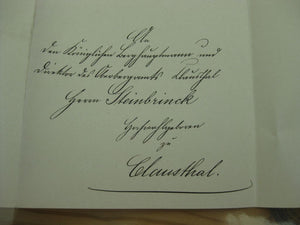 An
den Königlichen Berghauptmann und
Direktor des Oberbergamts Clausthal
Herrn Steinbrinck
Hochwohlgeboren
zu
Clausthal.